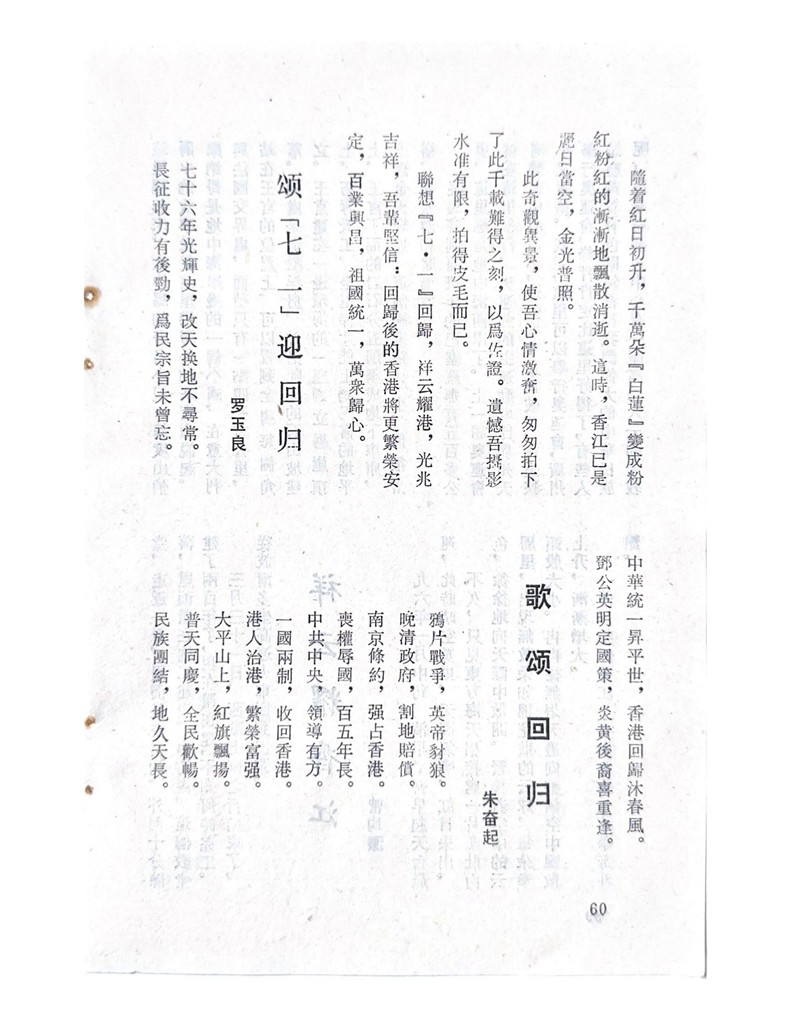 隨着紅日初升，千萬朵『白蓮』變成粉
紅粉紅的漸漸地飄散消逝。這時，香江已是
麗日當空，金光普照。
此奇觀異景，使吾心情激奮，匆匆拍下
了此千載難得之刻，以爲佐證。遺憾吾攝影
水准有限，拍得皮毛而已。
聯想『七·一』回歸，祥云耀港，光兆
吉祥，吾輩堅信：回歸後的香港將更繁榮安
定，百業興昌，祖國統一，萬衆歸心。
颂「七一」迎回归
罗玉良
七十六年光輝史，改天換地不尋常。
長征收力有後勁，爲民宗旨未曾忘。
中華統一昇平世，香港回歸沐春風。
鄧公英明定國策，炎黄後裔喜重逢。
歌颂回归
朱奋起
鴉片戰爭，英帝豺狼。
晚清政府，割地賠償。
南京條約，强占香港。
喪權辱國，百五年長。
中共中央，領導有方。
一國兩制，收回香港。
港人治港，繁榮富强。
大平山上，紅旗飄揚。
普天同慶，全民歡暢。
民族團結，地久天長。
60